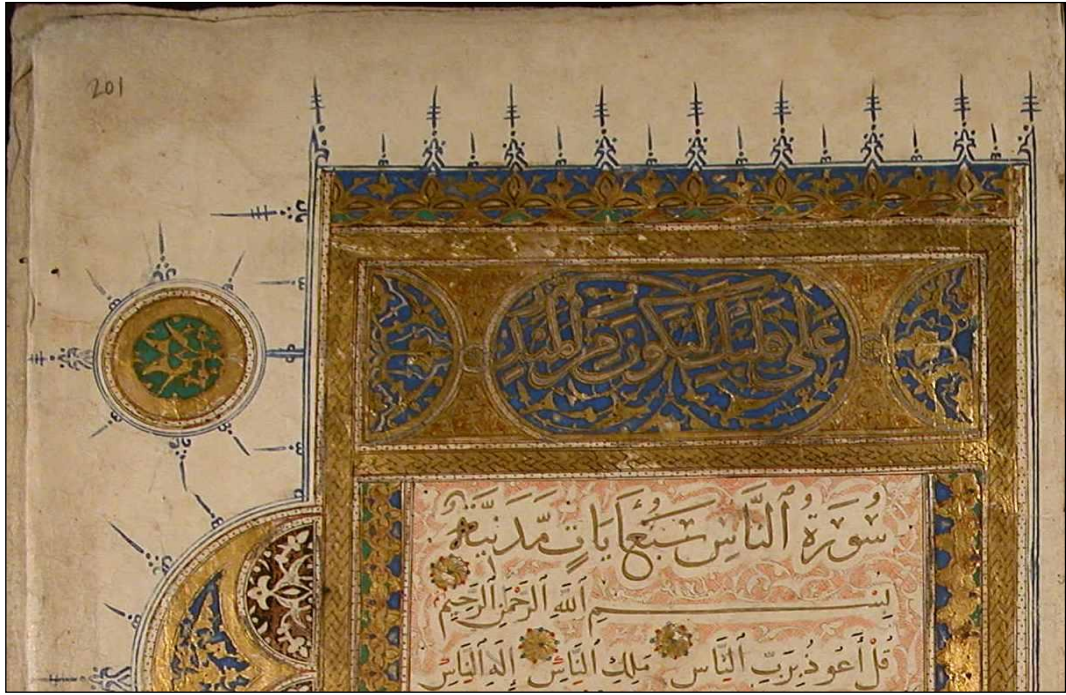 201
على قلبك لتكون من المنذرين
سُورَةُ ٱلنَّاسِ سَبْعُ ءَايَاتٍ مَّدَنِيَّةٌ
بِسْمِ ٱللَّهِ ٱلرَّحْمٰنِ ٱلرَّحِيمِ
قُلْ أَعُوذُ بِرَبِّ ٱلنَّاسِ مَلِكِ ٱلنَّاسِ إِلٰهِ ٱلنَّاسِ